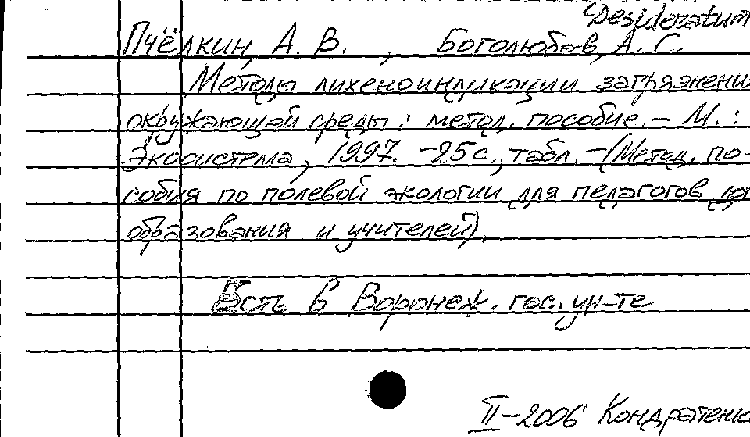 Desideratum
Пчёлкин, А. В. , Боголюбов, А. С.
Методы лихеноиндикации загрязнени
окружающей среды: метод. пособие. – М. :
Экосистема, 1997. – 25 с., табл. – (Метод. по-
собия по полевой экологии для педагогов доп
образования и учителей).
Есть в Воронеж. гос. ун-те
II – 2006 Кондратенк